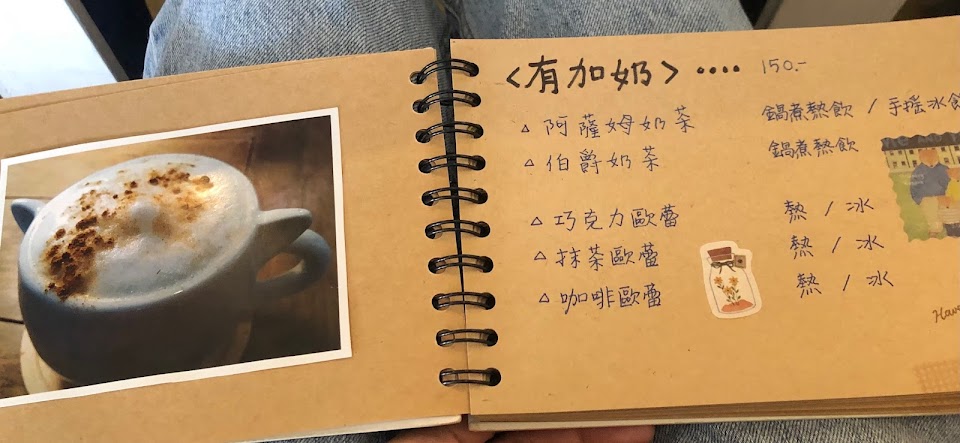 <有加奶> •••• 150.-
△ 阿薩姆奶茶 鍋煮熱飲 / 手搖冰飲
△ 伯爵奶茶 鍋煮熱飲
△ 巧克力歐蕾 熱 / 冰
△ 抹茶歐蕾 熱 / 冰
△ 咖啡歐蕾 熱 / 冰